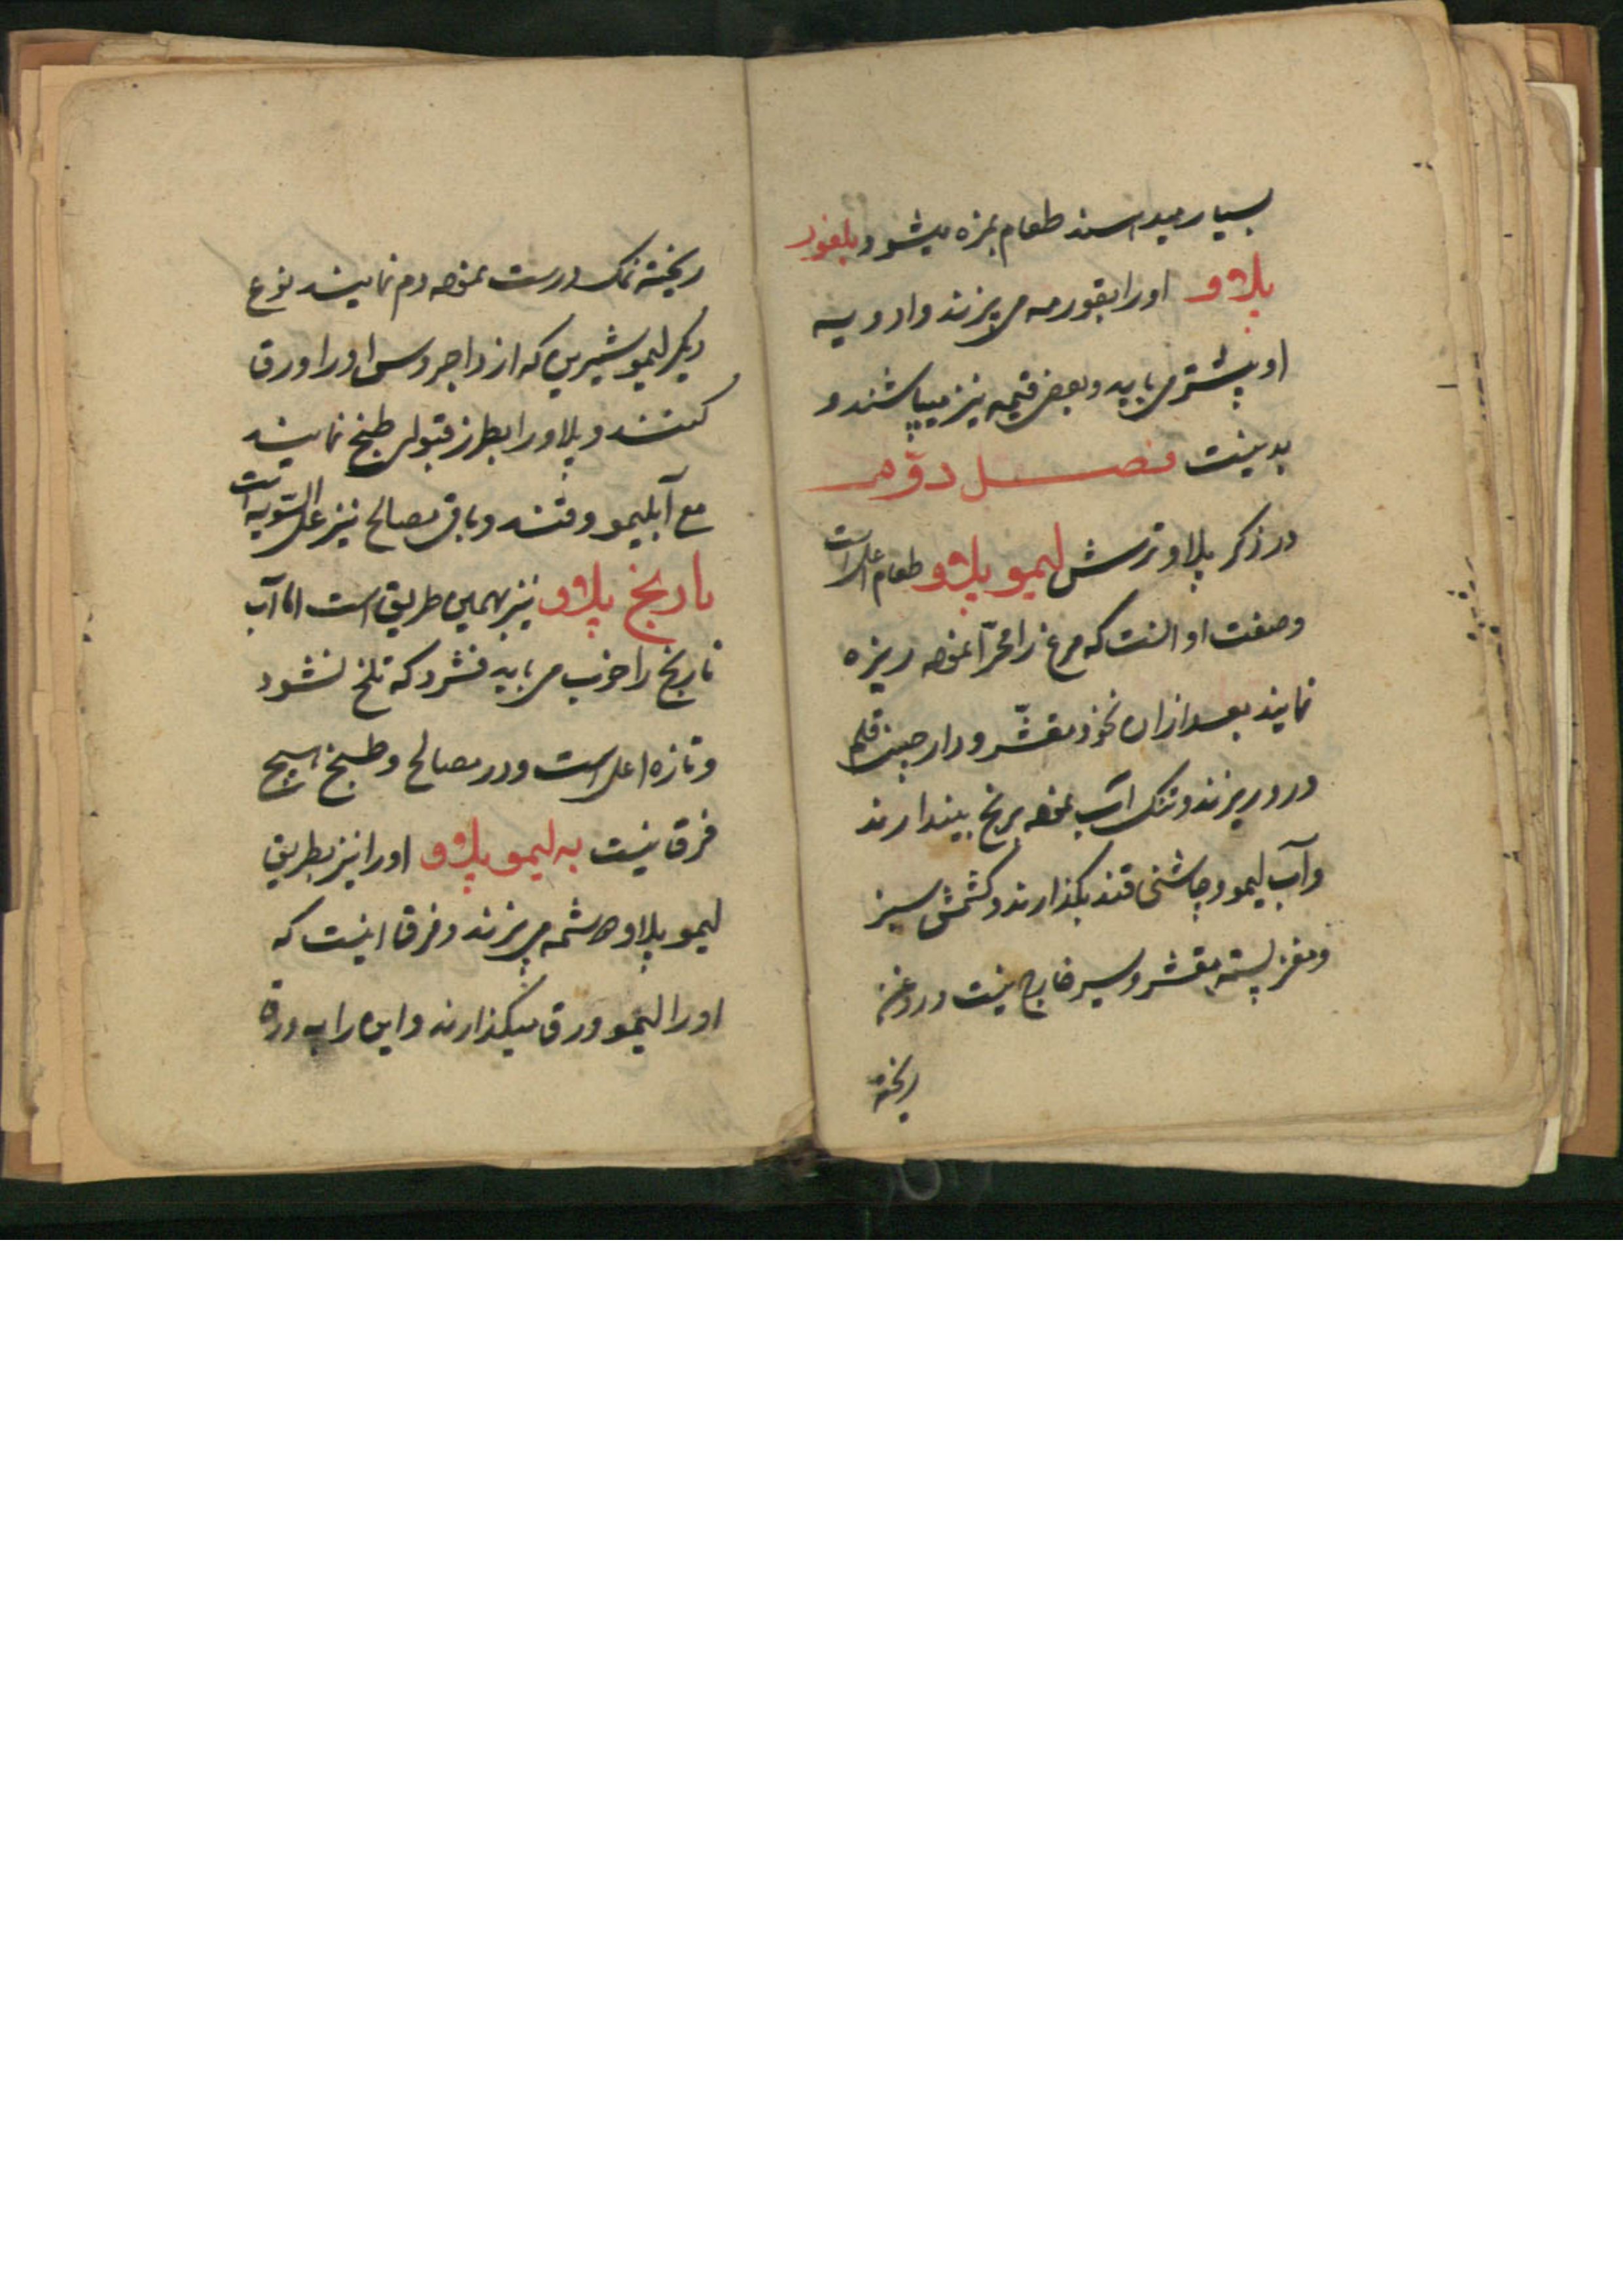 بسیار میدا سند طعام بمزه میشود بلغور
پلاو اورا بقورمه می پزند وادویه
او پیشتر می باید و بعضی قیمه نیز میپاشند و
بد نیست فصل دوّم
در ذکر پلاو ترش لیمو پلاو طعام اعلی است
وصفت او انست که مرغ را محرّا نموده ریزه
نمایند بعد ازان نخود مقشّر ودارچینی قلم
درو ریزند ونمک آب نموده برنج بیندازند
وآب لیمو وچاشنی قند بگذارند وکشمش سبز
ومغز پسته مقشر وسیر خارج نیست وروغن
ریخته
ریخته نمک درست نموده دم نمایند نوع
دیگر لیمو شیرین که از اورا ورق
کنند و پلاو را بطرز قبولی طبخ نمایند
مع آبلیمو وقند وباقی مصالح نیز علی السّویه است
نارنج پلاو نیز بهمین طریق است اما آب
نارنج را خوب می باید فشرد که تلخ نشود
وتازه اعلی است ودر مصالح وطبخ هیچ
فرق نیست به لیمو پلاو اورا نیز بطریق
لیمو پلاو هاشمه می پزند وفرق اینست که
اورا لیمو ورق میگذارند واین را به ورق